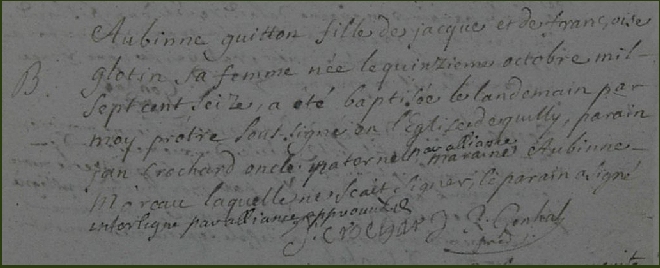 Aubinne guitton fille de jacque et de françoise
B glotin sa femme née le quinzieme octobre mil
sept cent seize, a été baptisée le landemain par
moy prêtre soussigné en l'Eglise de, parain
jan Crochard oncle paternel par alliance maraine Aubinne
Moreau laquelle ne scait signer, le parain a signé
interligne par alliance approuvé
J. Crochard